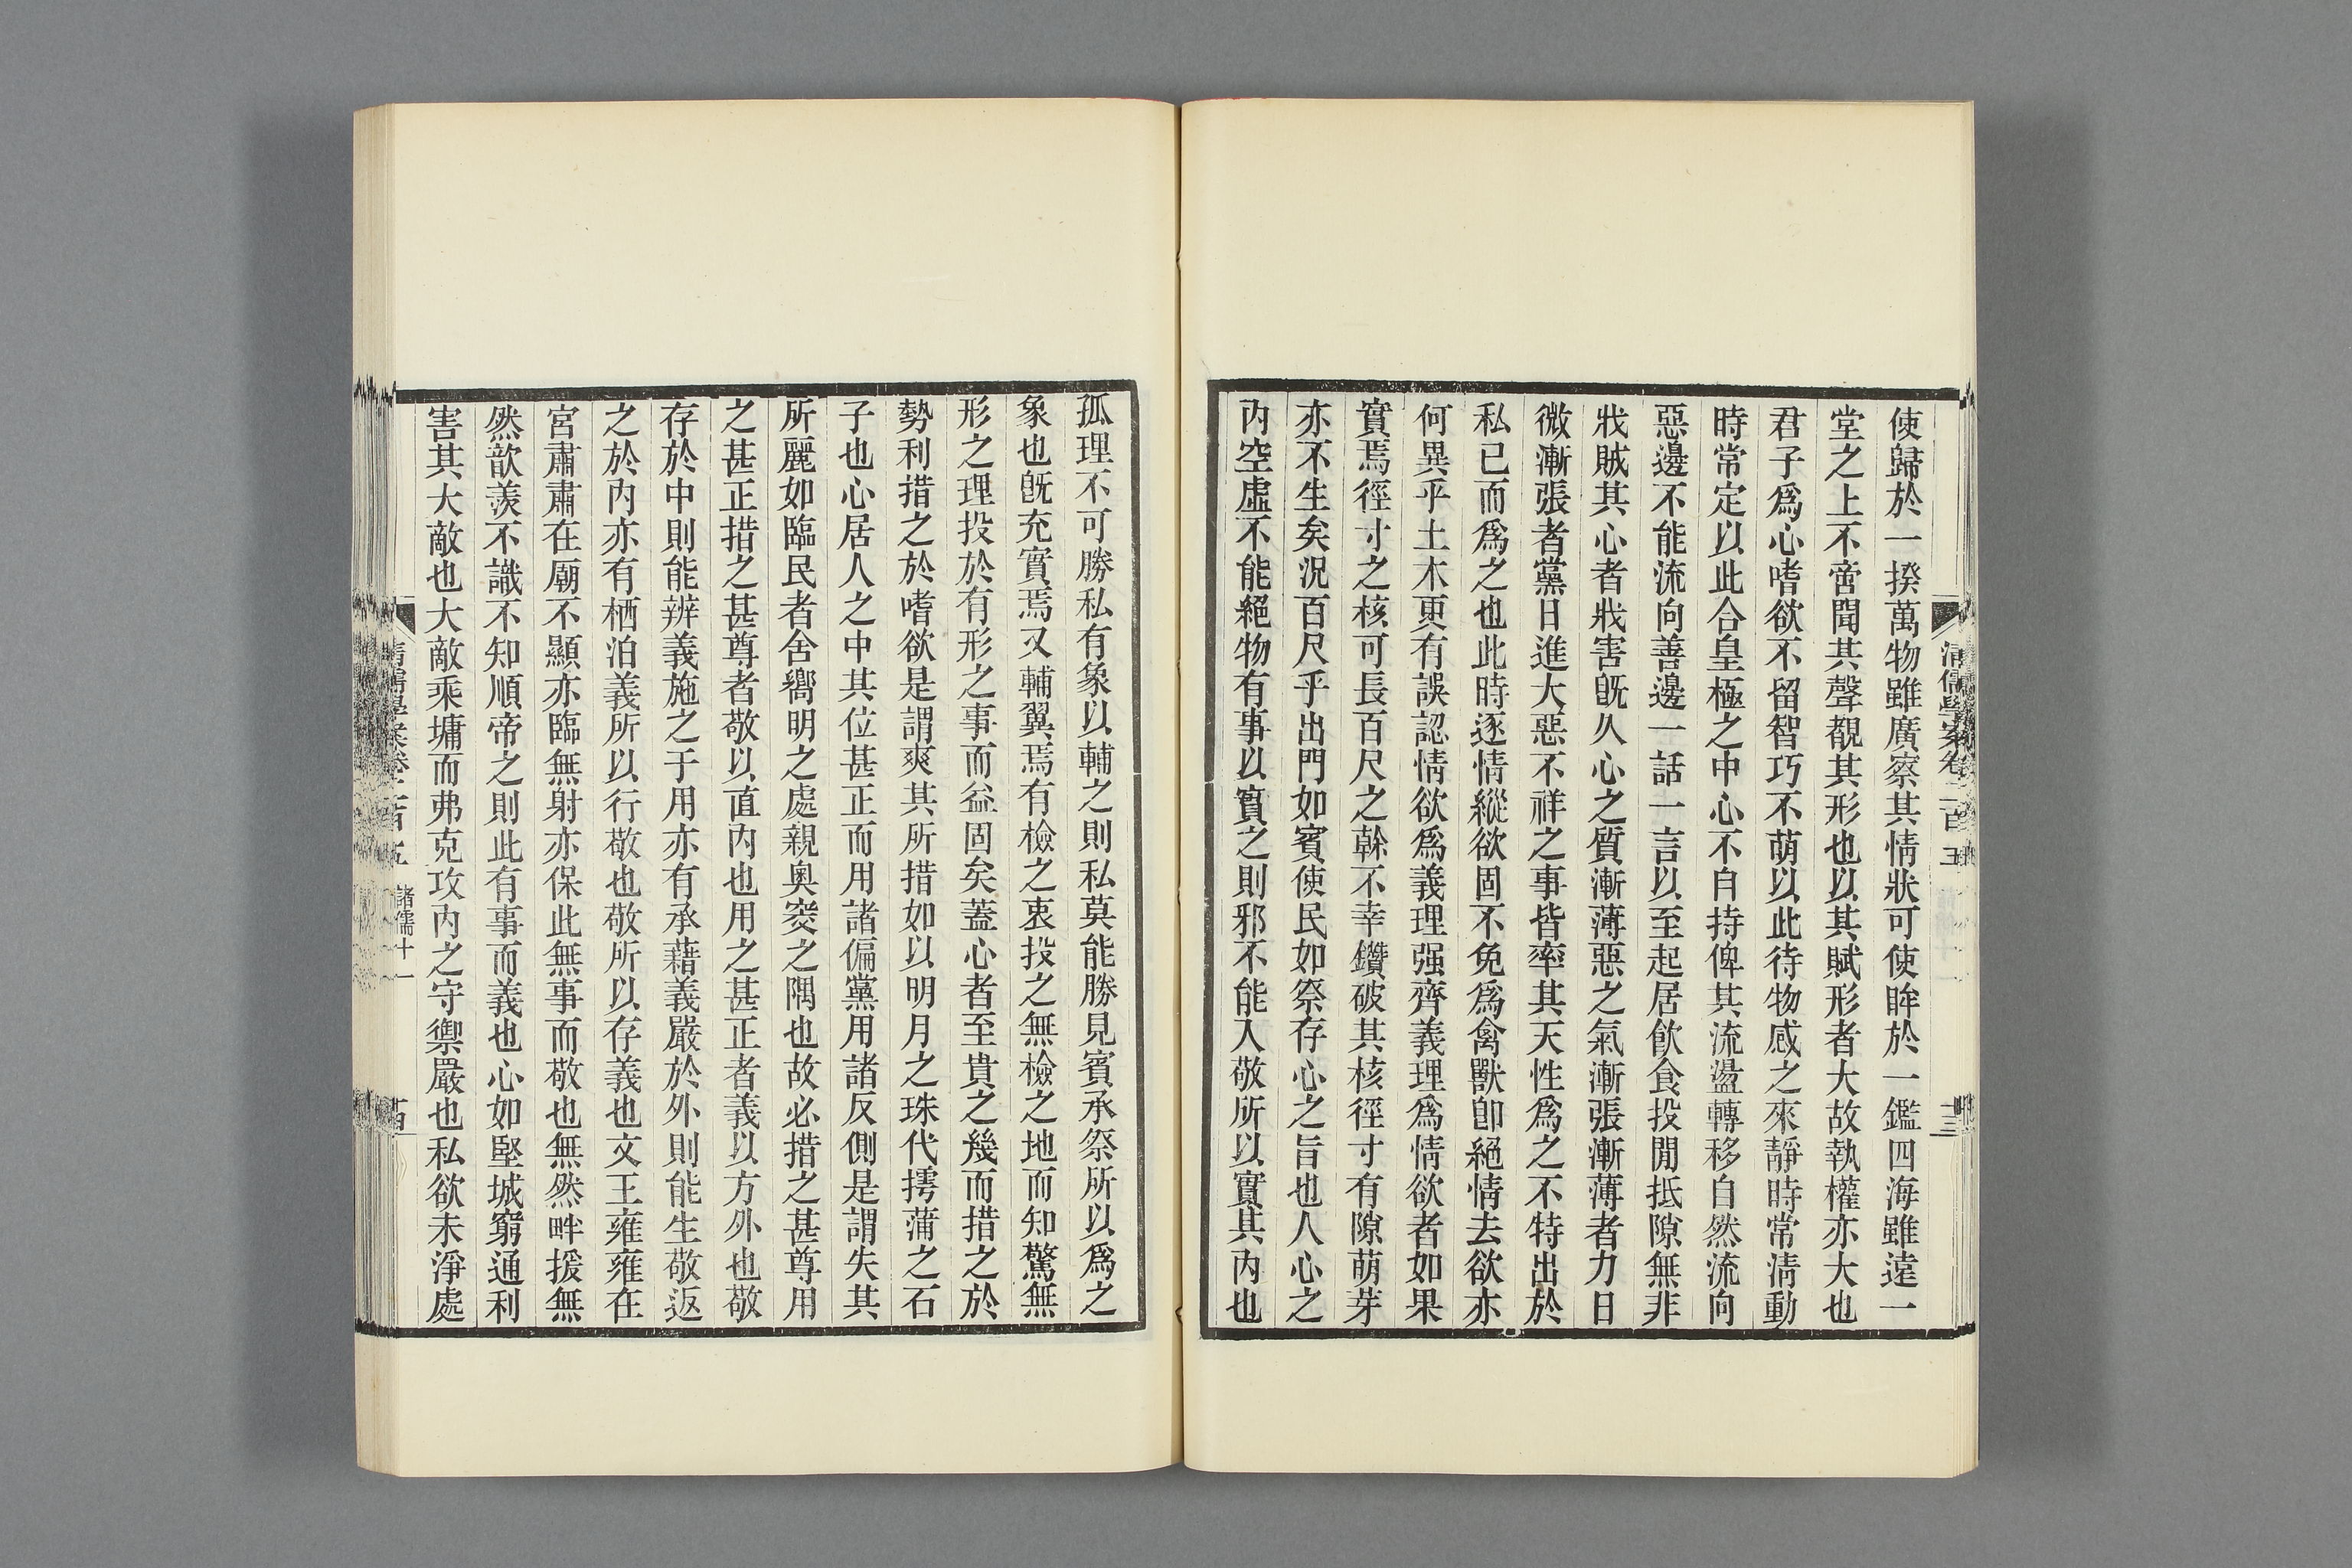 使歸於一揆萬物雖廣察其情狀可使眸於一鑑四海雖遠一
堂之上不啻聞其聲覩其形也以其賦形者大故執權亦大也
君子爲心嗜欲不留智巧不萌以此待物感之來靜時常淸動
時常定以此合皇極之中心不自持俾其流盪轉移自然流向
惡邊不能流向善邊一話一言以至起居飮食投閒抵隙無非
戕賊其心者戕害旣久心之質漸薄惡之氣漸張漸薄者力日
微漸張者黨日進大惡不祥之事皆率其天性爲之不特出於
私已而爲之也此時逐情縱欲固不免爲禽獸卽絕情去欲亦
何異乎土木更有誤認情欲爲義理强齊義理爲情欲者如果
實焉徑寸之核可長百尺之榦不幸鑽破其核徑寸有隙萌芽
亦不生矣況百尺乎出門如賓使民如祭存心之旨也人心之
內空虛不能絕物有事以實之則邪不能入敬所以實其內也
孤理不可勝私有象以輔之則私莫能勝見賓承祭所以爲之
象也旣充實焉又輔翼焉有檢之衷投之無檢之地而知驚無
形之理投於有形之事而益固矣蓋心者至貴之幾而措之於
勢利措之於嗜欲是謂爽其所措如以明月之珠代摴蒲之石
子也心居人之中其位甚正而用諸偏黨用諸反側是謂失其
所麗如臨民者舍嚮明之處親奧窔之隅也故必措之甚尊用
之甚正措之甚尊者敬以直內也用之甚正者義以方外也敬
存於中則能辨義施之于用亦有承藉義嚴於外則能生敬返
之於內亦有栖泊義所以行敬也敬所以存義也文王雍雍在
宮肅肅在廟不顯亦臨無射亦保此無事而敬也無然畔援無
然歆羨不識不知順帝之則此有事而義也心如堅城窮通利
害其大敵也大敵乘墉而弗克攻內之守禦嚴也私欲未淨處
淸儒學案卷二百五 諸儒十一